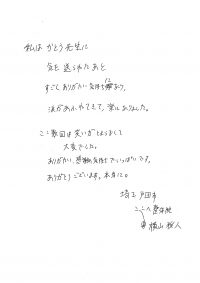 私は かとう先生に
気を 送られたあと
すごく ありがたい 気持ちになり、
涙があふれてきて、楽になりました。
ここ数回は 笑いがとまらなくて
大変でした。
ありがたい、感謝の気持ちでいっぱいです。
ありがとうございます。本当に。
埼玉 戸田市
ここへ整体院
横山 桜人